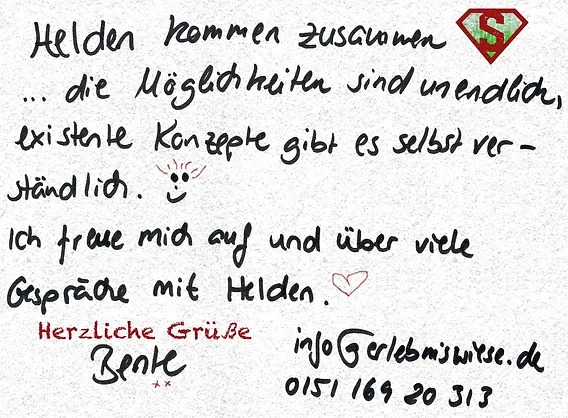 Helden kommen zusammen S
... die Möglichkeiten sind unendlich,
existente Konzepte gibt es selbstver-
ständlich.
Ich freue mich auf und über viele
Gespräche mit Helden.
Herzliche Grüße
Bente
info@erlebniswiese.de
0151 169 20 313